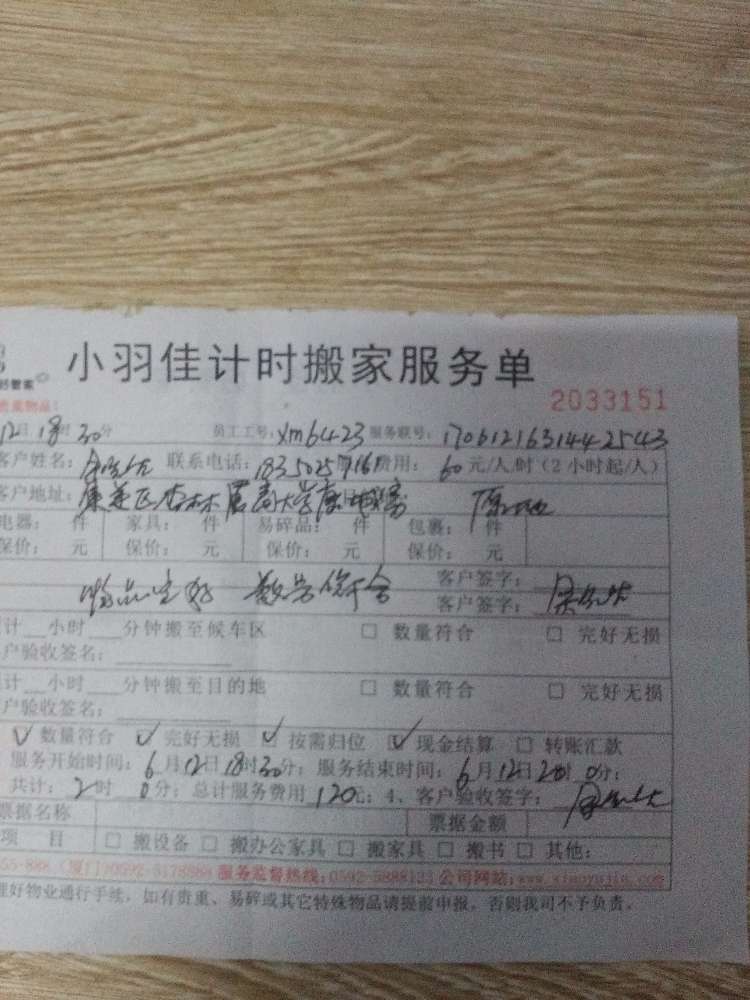 小羽佳计时搬家服务单
2033151
贵重物品:
12日 18时 30分 员工工号: xm6423 服务联号: 170612163144 2543
客户姓名: 联系电话: 费用: 60元/人/时(2小时起/人)
客户地址:
电器: 件 家具: 件 易碎品: 件 包裹: 件
保价: 元 保价: 元 保价: 元 保价: 元
物品完好 数量符合 客户签字:
客户签字:
计__小时__分钟搬至候车区 □ 数量符合 □ 完好无损
户验收签名:
计__小时__分钟搬至目的地 □ 数量符合 □ 完好无损
户验收签名:
☑ 数量符合 ☑ 完好无损 ☑ 按需归位 ☑ 现金结算 □ 转账汇款
服务开始时间: 6月12日18时30分; 服务结束时间: 6月12日20时0分;
共计: 2时0分; 总计服务费用 120元; 4、客户验收签字:
票据名称 票据金额
项 目 □ 搬设备 □ 搬办公家具 □ 搬家具 □ 搬书 □ 其他:
服务监督热线: 0592-5888123 公司网站: www.xiaoyujia.com
理好物业通行手续, 如有贵重、易碎或其它特殊物品请提前申报, 否则我司不予负责。